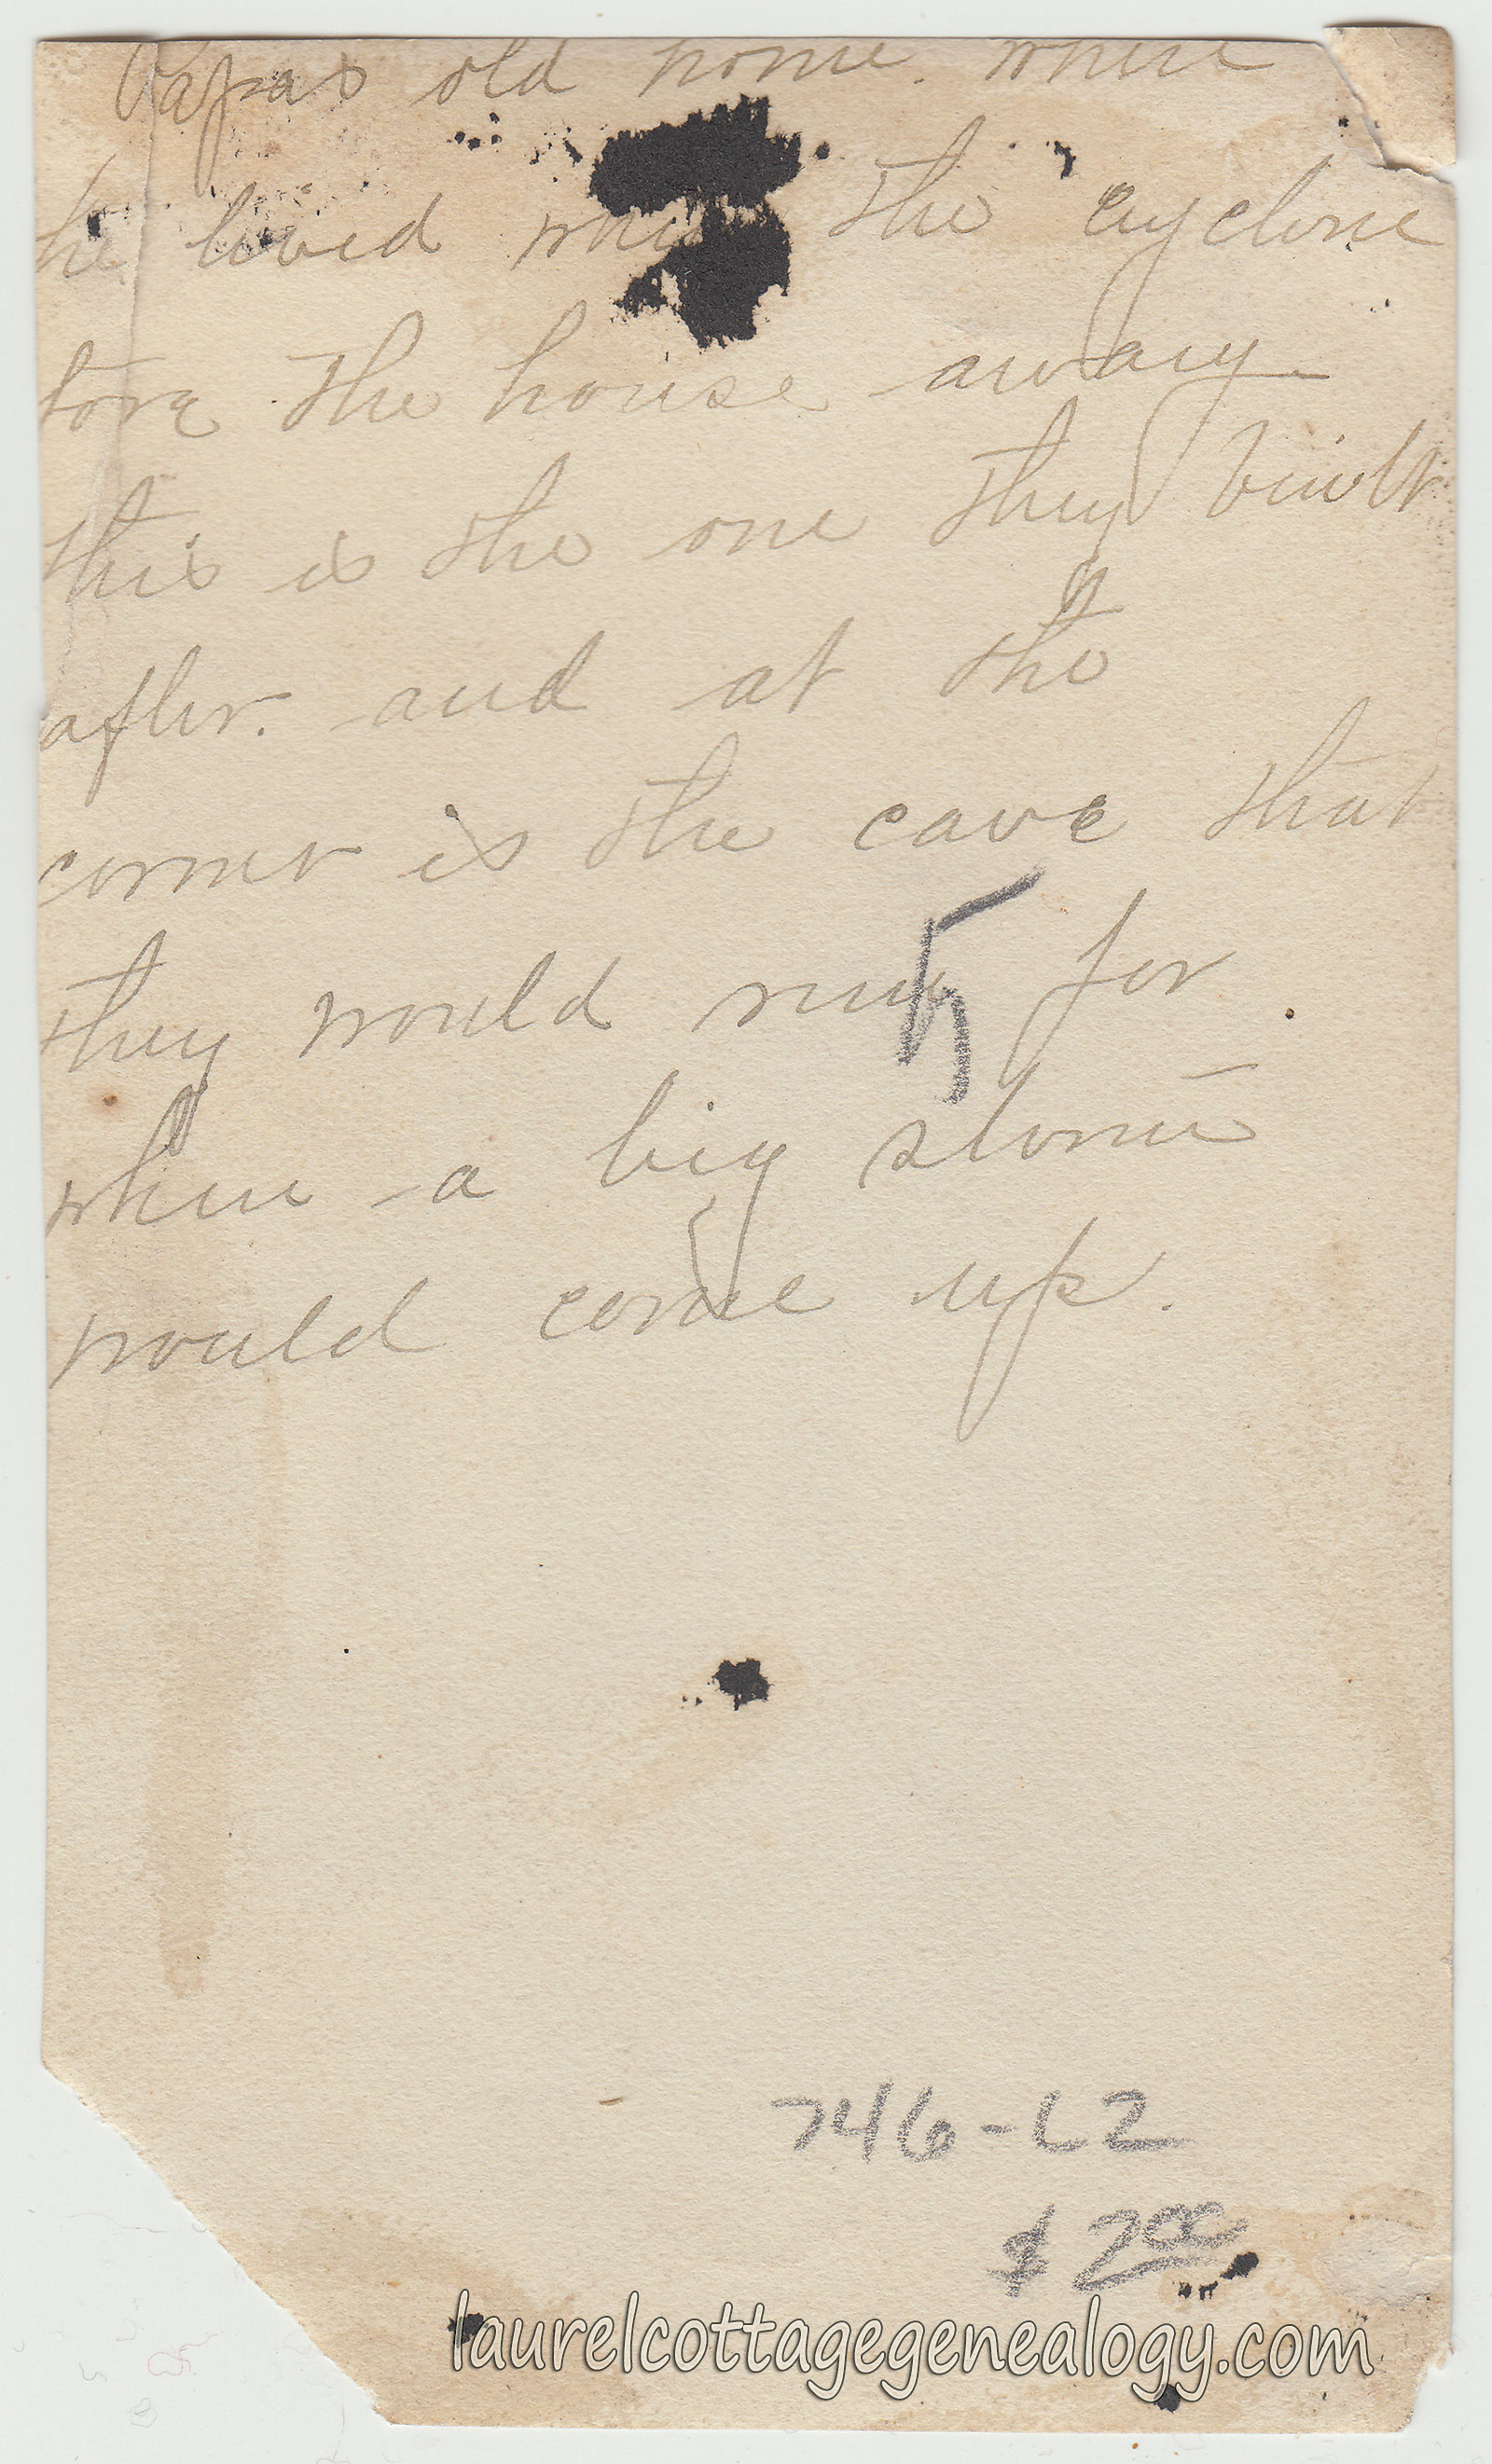 Papas old home. where
he lived when the cyclone
tore the house away
this is the one they built
after. and at the
corner is the cave that
they would run for
5
when a big storm
would come up.
746-L2
$2.00
laurelcottagegenealogy.com